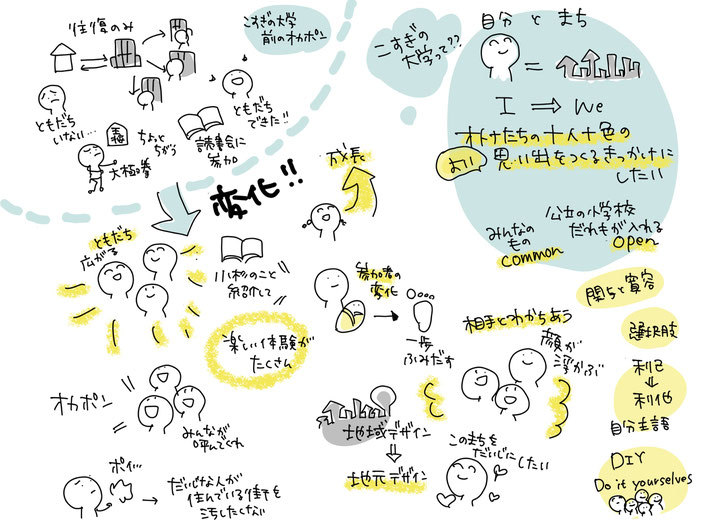 往復のみ
こすぎの大学
前のオカポン
ともだち
いない…
将棋
ちょっと
ちがう
太極拳
読書会に
参加
ともだち
できた!!
こすぎの
大学って??
自分とまち
=
I ⇒ We
オトナたちの十人十色の
おい
思い出をつくるきっかけに
したい
みんなの
もの
common
公立の小学校
だれもが入れる
open
変化!!
成長
ともだち
広がる
小杉のこと
紹介して
楽しい体験が
たくさん
参加者の
変化
一歩
ふみだす
相手とわかちあう
顔が
浮かぶ
関与と寛容
選択肢
利己
利他
自分主語
DIY
Do it yourselves
オカポン
みんなが
呼んでくれ
地域デザイン
地元デザイン
このまちを
だいじにしたい
ポイ…
だいじな人が
住んでいる街を
汚したくない